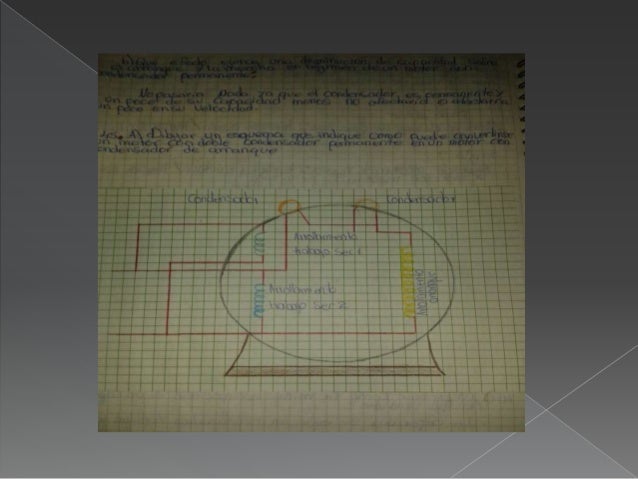 efecto una disminución de capacidad sobre
el arranque y la en de un motor con
condensador permanente?
No pasaria Nada ya que el condensador, es permanente y
un poco de su capacidad menos no afectaria o afectaria
un poco en su Velocidad.
A) Dibujar un esquema que indique como puede convertirse
un motor con doble condensador permanente en un motor con
condensador de arranque
Condensador Condensador
Arrollamiento
trabajo Sec 1
Arrollamiento
trabajo Sec 2